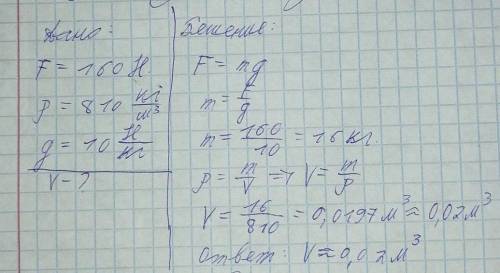 Дано:
F = 160 Н.
ρ = 810 кг/м³
g = 10 Н/кг
V - ?
Решение:
F = mg
m = F/g
m = 160/10 = 16 кг.
ρ = m/V ⇒ V = m/ρ
V = 16/810 = 0,0197 м³ ≈ 0,02 м³
Ответ: V ≈ 0,02 м³